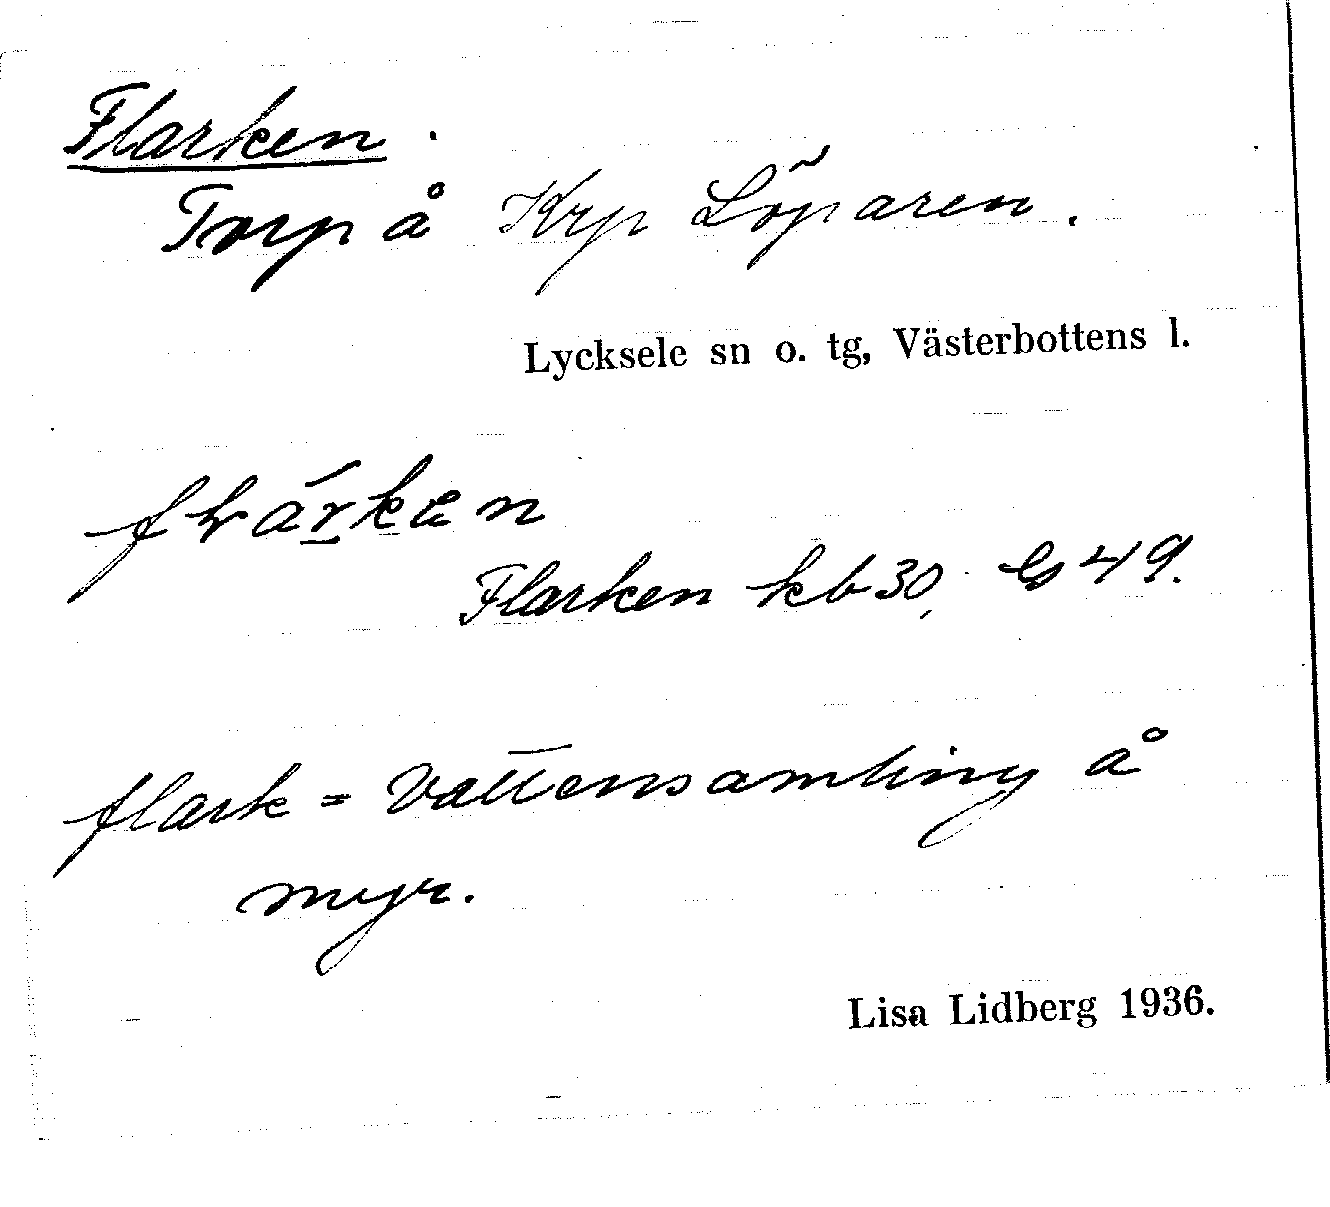 Flarken.
Torp å Krp Löparen.
Lycksele sn o. tg, Västerbottens l.
Flarken kb 30, 49.
flark = Vattensamling å
myr.
Lisa Lidberg 1936.